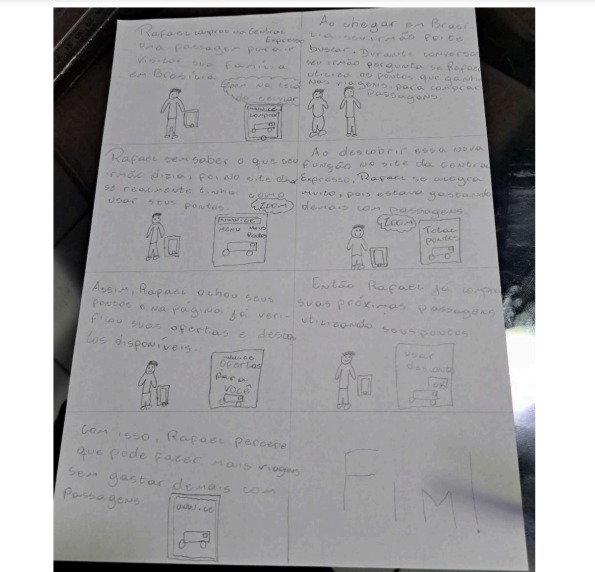 Rafael comprou na Central
Expresso
uma passagem para ir
visitar sua família
em Brasília
comprar
Ao chegar em Brasí
lia seu irmão foi te
buscar. Durante conversa
seu irmão pergunta se Rafael
utiliza os pontos que ganha
nas viagens, para comprar
passagens.
Rafael sem saber o que seu
irmão dizia, foi no site olhar
se realmente tinha como
usar seus pontos.
ZOOM
MENU
Pontos
Ao descobrir essa nova
função no site da Central
Expresso, Rafael se alegra
muito, pois estava gastando
demais com passagens.
ZOOM
Total
pontos
Assim, Rafael olhou seus
pontos e na página já veri-
ficou suas ofertas e descon
tos disponíveis.
OFERTAS
para
VOCÊ
Então Rafael já compra
suas próximas passagens
utilizando seus pontos
usar
desconto
OK
Com isso, Rafael percebe
que pode fazer mais viagens
sem gastar demais com
Passagens
FIM!